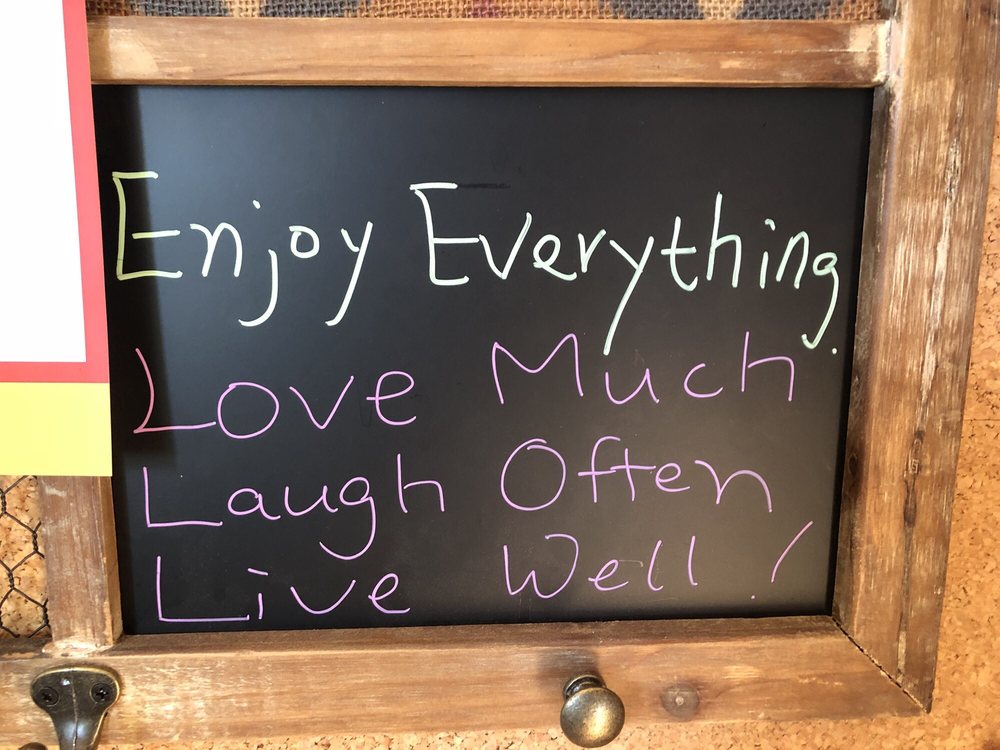 Enjoy Everything.
Love Much
Laugh Often
Live Well!